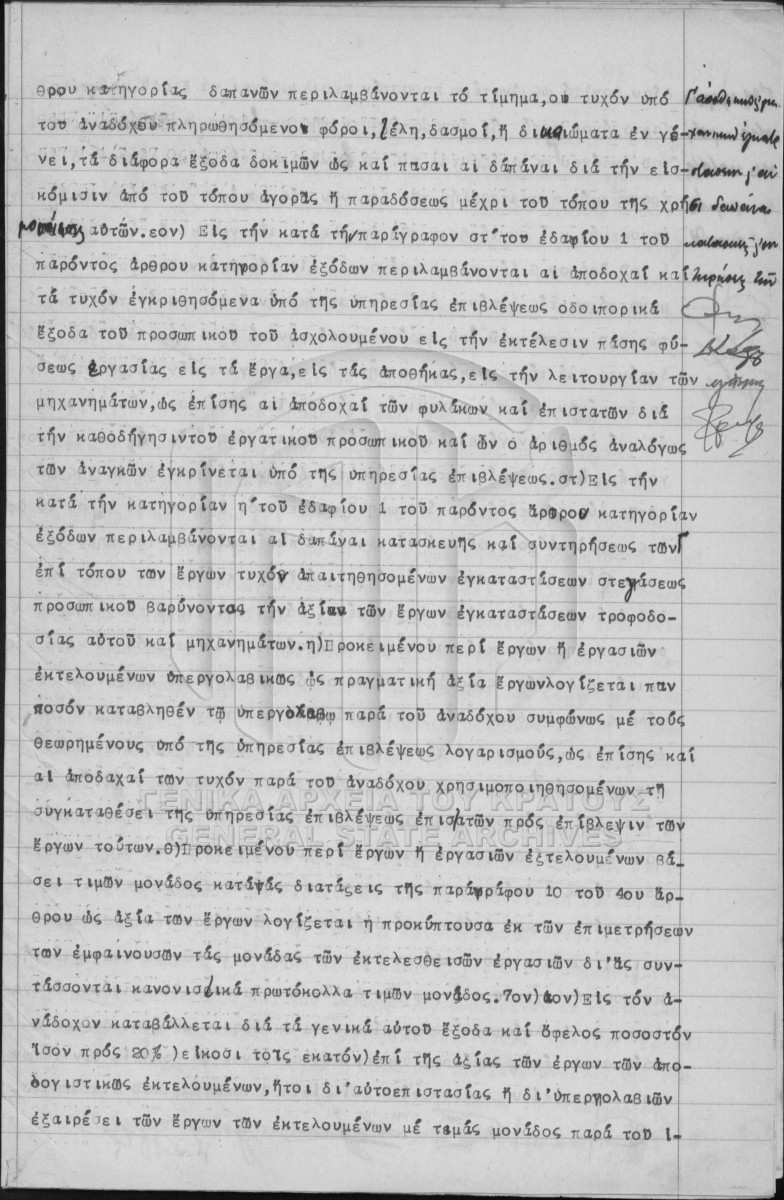 θρου κατηγορίας δαπανῶν περιλαμβάνονται τό τίμημα,οι τυχόν υπό
του ἀναδόχου πληρωθησόμενοι φόροι,τέλη,δασμοί,ἤ δικαιώματα ἐν γέ-
νει,τά διάφορα ἔξοδα δοκιμῶν ὡς καί πασαι αἱ δάπάναι διά τήν εἰσ-
κόμισιν ἀπό του τόπου ἀγορᾶς ἤ παραδόσεως μέχρι του τόπου τῆς χρή
αὐτῶν.εον) Εἰς τήν κατά τήν παράγραφον στ΄του ἐδαφίου 1 του
παρόντος ἄρθρου κατηγορίαν ἐξόδων περιλαμβάνονται αἱ ἀποδοχαί καί
τά τυχόν ἐγκριθησόμενα ὑπό τῆς ὑπηρεσίας ἐπιβλέψεως οδοιπορικά
ἔξοδα του προσωπικου του ἀσχολουμένου εἰς τήν ἐκτέλεσιν πάσης φύ-
σεως ἐργασίας εἰς τά ἔργα,εἰς τάς ἀποθήκας,εἰς τήν λειτουργίαν τῶν
μηχανημάτων,ὡς ἐπίσης αἱ ἀποδοχαί τῶν φυλάκων καί ἐπιστατῶν διά
τήν καθοδήγησιντου ἐργατικου προσωπικου καί ὧν ο ἀριθμός ἀναλόγως
τῶν ἀναγκῶν ἐγκρίνεται ὑπό τῆς ὑπηρεσίας ἐπιβλέψεως.στ)Εἰς τήν
κατά τήν κατηγορίαν η΄του ἐδαφίου 1 του παρόντος ἄρθρου κατηγορίαν
ἐξόδων περιλαμβάνονται αἱ δαπάναι κατασκευῆς καί συντηρήσεως των
ἐπί τόπου των ἔργων τυχόν ἀπαιτηθησομένων ἐγκαταστάσεων στεγάσεως
προσωπικου βαρύνοντας τήν ἀξίαν τῶν ἔργων ἐγκαταστάσεων τροφοδο-
σίας αὐτου καί μηχανημάτων.η)Προκειμένου περί ἔργων ἤ ἐργασιῶν
ἐκτελουμένων ὑπεργολαβικως ὡς πραγματική ἀξία ἔργωνλογίζεται παν
ποσόν καταβληθέν τῷ ὑπεργολάβῳ παρά του ἀναδόχου συμφώνως μέ τούς
θεωρημένους ὑπό τῆς ὑπηρεσίας ἐπιβλέψεως λογαρισμούς,ὡς ἐπίσης καί
αἱ ἀποδαχαί των τυχόν παρά του ἀναδόχου χρησιμοποιηθησομένων τῃ
συγκαταθέσει τῆς ὑπηρεσίας ἐπιβλέψεως ἐπιστατῶν πρός ἐπίβλεψιν τῶν
ἔργων τούτων.θ)Προκειμένου περί ἔργων ἤ ἐργασιῶν ἐξτελουμένων βά-
σει τιμῶν μονάδος κατάτάς διατάξεις τῆς παραγράφου 10 του 4ου ἄρ-
θρου ὡς ἀξία τῶν ἔργων λογίζεται ἡ προκύπτουσα ἐκ τῶν ἐπιμετρήσεων
των ἐμφαινουσῶν τάς μονάδας τῶν ἐκτελεσθεισῶν ἐργασιῶν δι'ἅς συν-
τάσσονται κανονιστικά πρωτόκολλα τιμῶν μονάδος.7ον)αον)Εἰς τόν ἀ-
νάδοχον καταβάλλεται διά τά γενικά αὐτου ἔξοδα καί ὄφελος ποσοστόν
ἴσον πρός 20% )εἴκοσι τοῖς ἑκατόν)ἐπί τῆς ἀξίας τῶν ἔργων τῶν ἀπο-
λογιστικῶς ἐκτελουμένων,ἤτοι δι'αὐτοεπιστασίας ἤ δι'ὑπεργολαβιῶν
ἐξαιρέσει τῶν ἔργων τῶν ἐκτελουμένων μέ τιμάς μονάδος παρά του ἰ-
ΓΕΝΙΚΑ ΑΡΧΕΙΑ ΤΟΥ ΚΡΑΤΟΥΣ
GENERAL STATE ARCHIVES